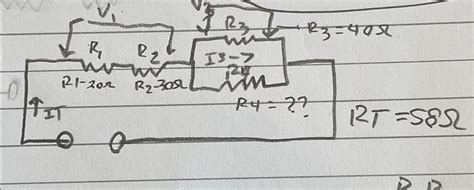 V1
V2
R3
R3=40Ω
R1
R2
I3→
R4
R1-20Ω
R2-30Ω
R4 = ??
IT
RT=58Ω